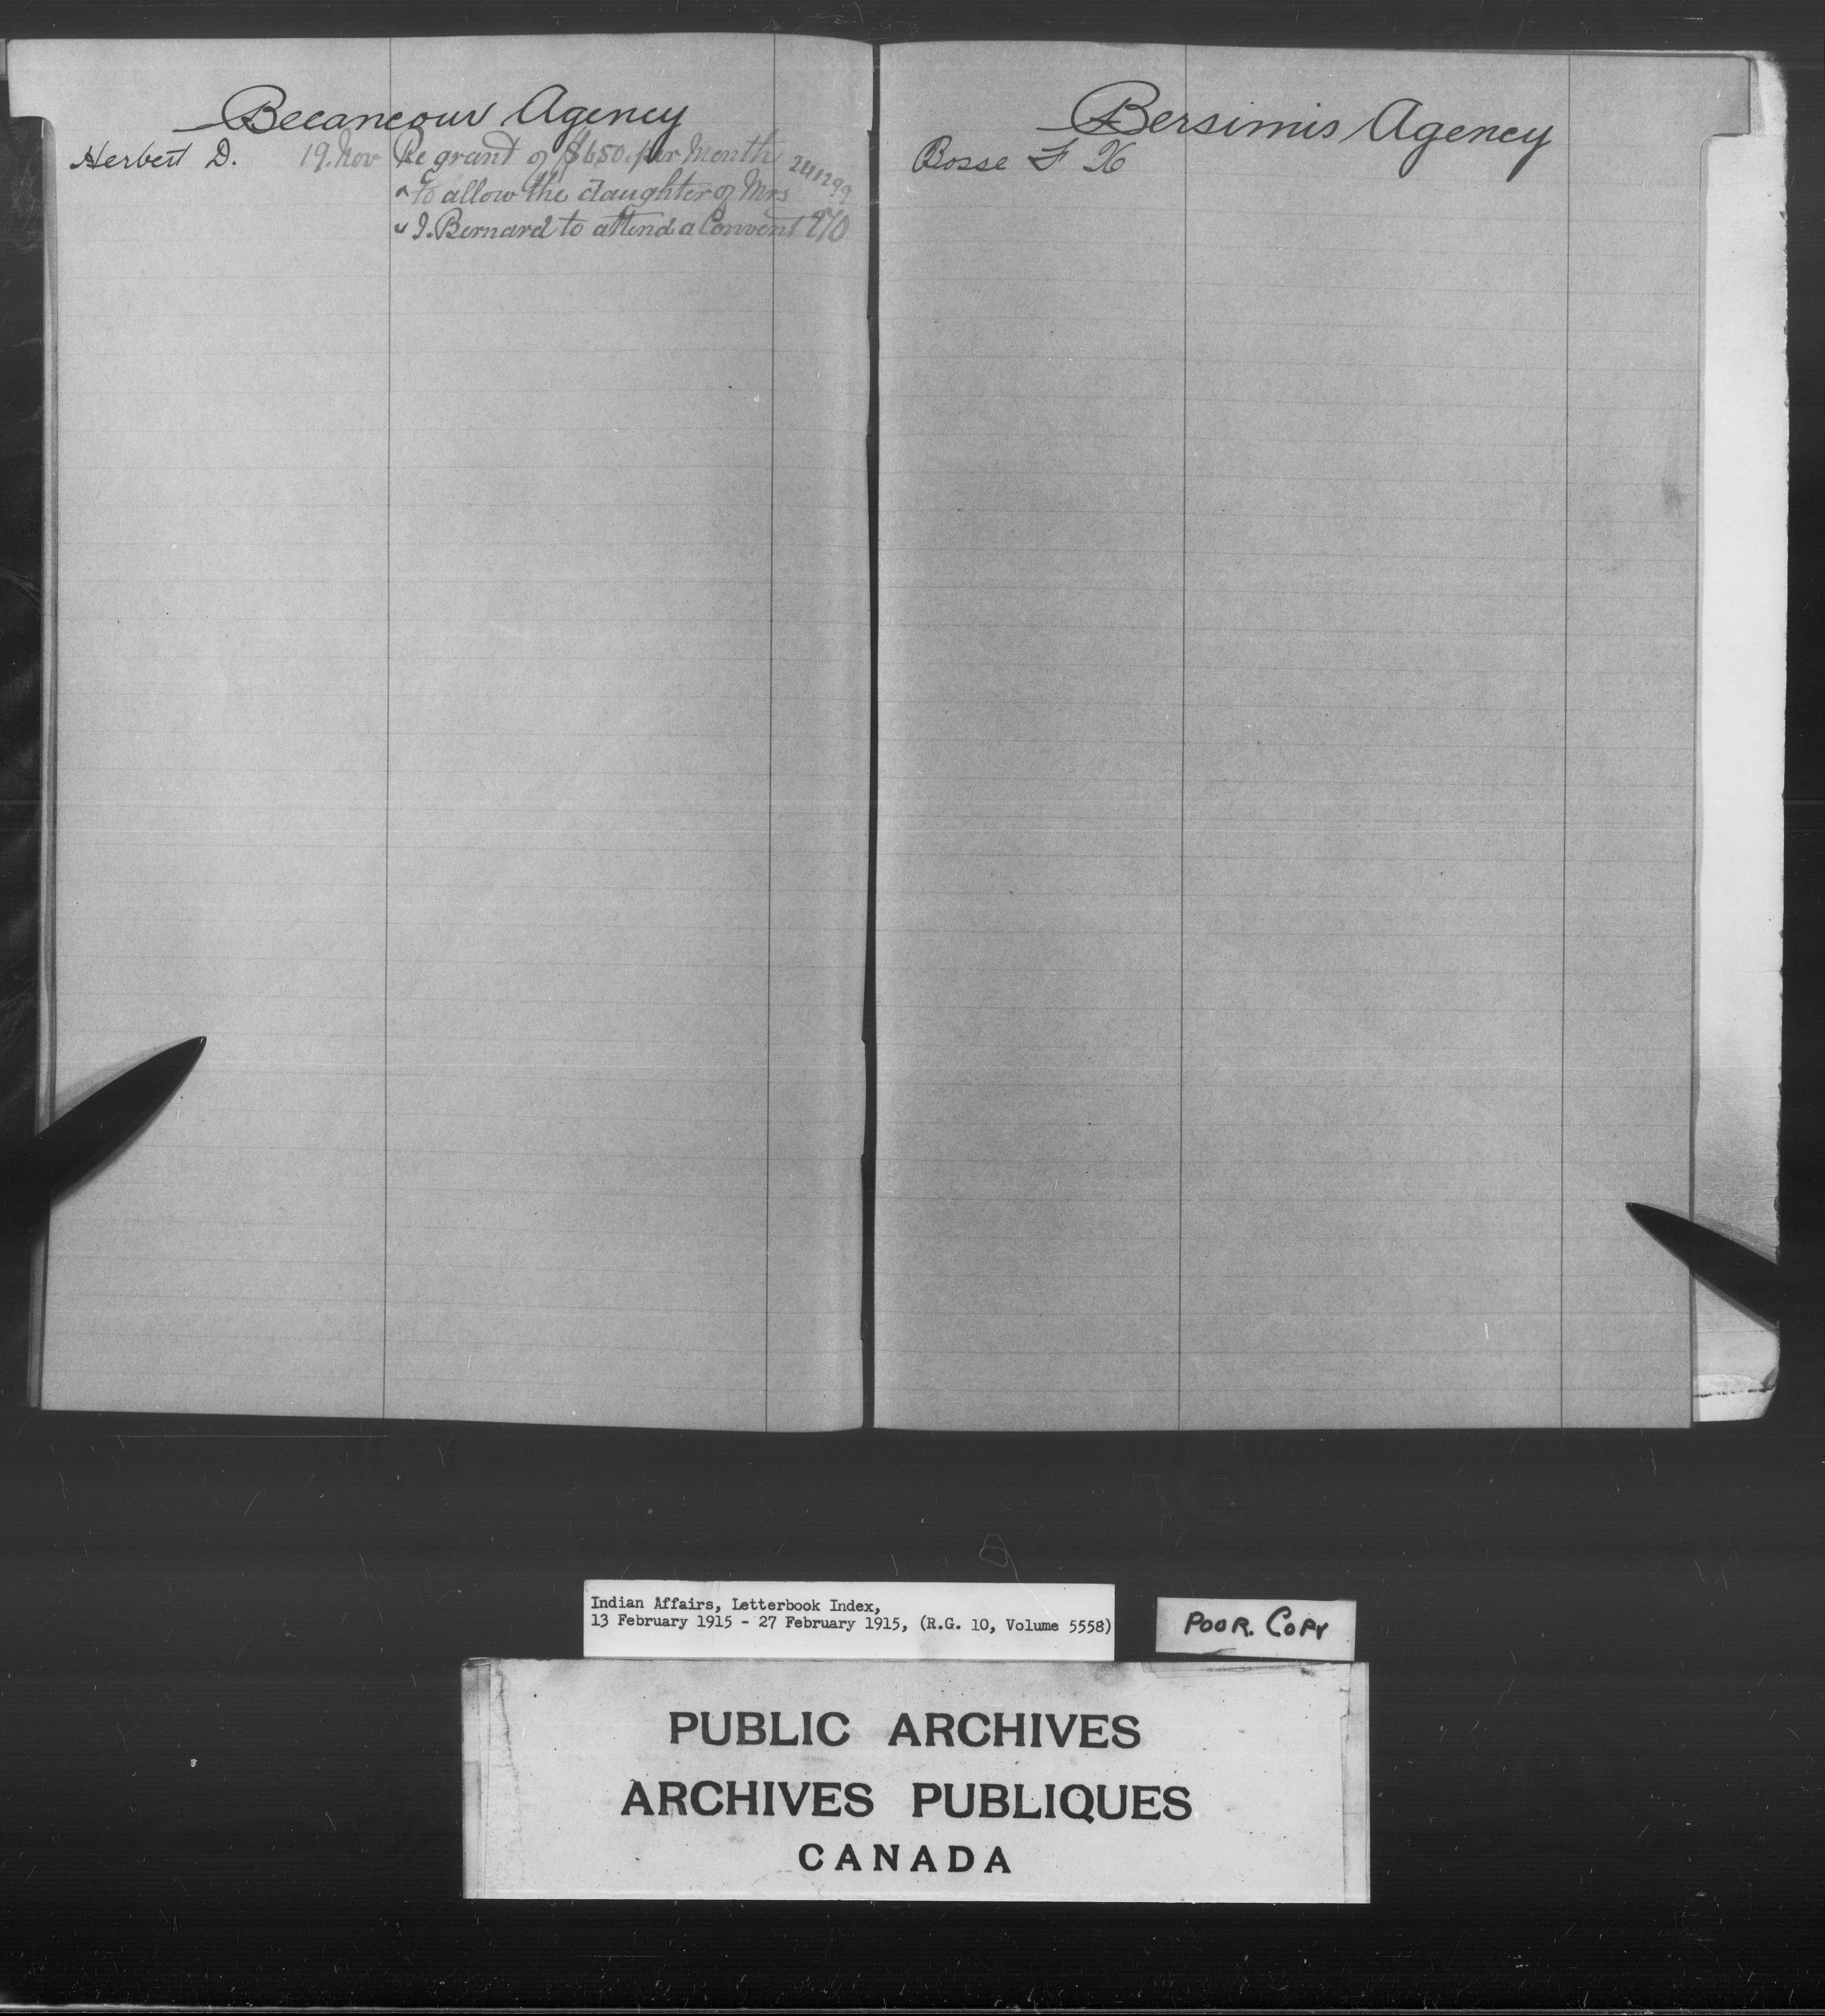 Becancour Agency
Herbert D. 19. Nov Re grant of $6.50 per Month 241299
" to allow the daughter of Mrs
" I. Bernard to attend a Convent 970
Bersimis Agency
Bosse F X
Indian Affairs, Letterbook Index,
13 February 1915 - 27 February 1915, (R.G. 10, Volume 5558)
POOR. COPY
PUBLIC ARCHIVES
ARCHIVES PUBLIQUES
CANADA